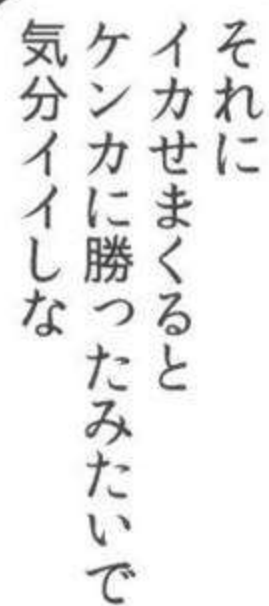 それに
イカせまくると
ケンカに勝ったみたいで
気分イイしな